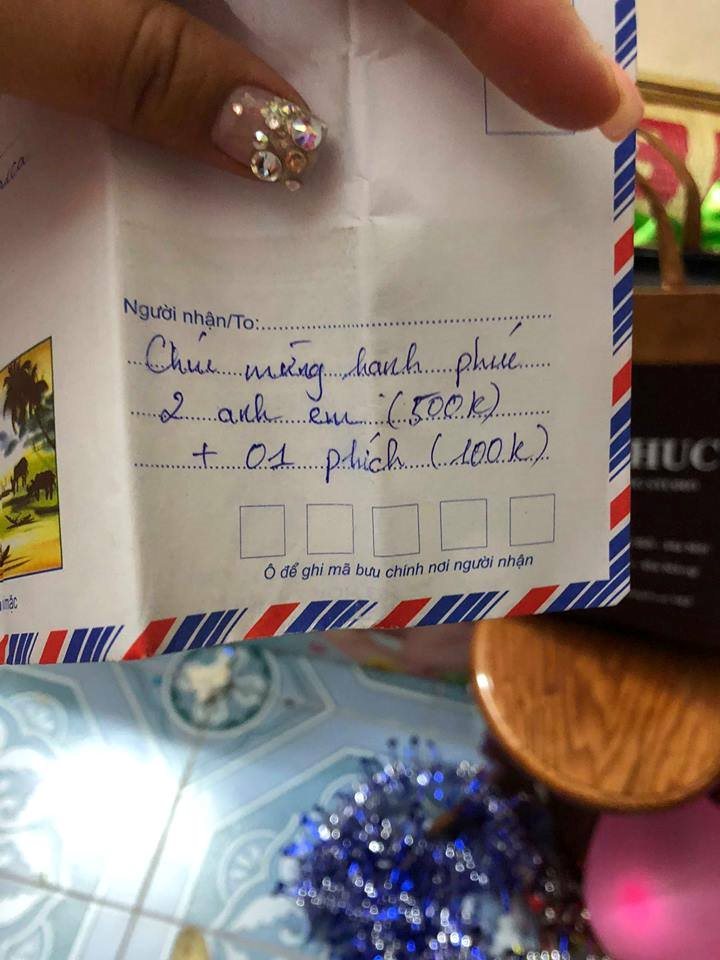 Người nhận/To:
Chúc mừng hạnh phúc
2 anh em (500k)
+ 01 phích (100k)
Ô để ghi mã bưu chính nơi người nhận
HUC